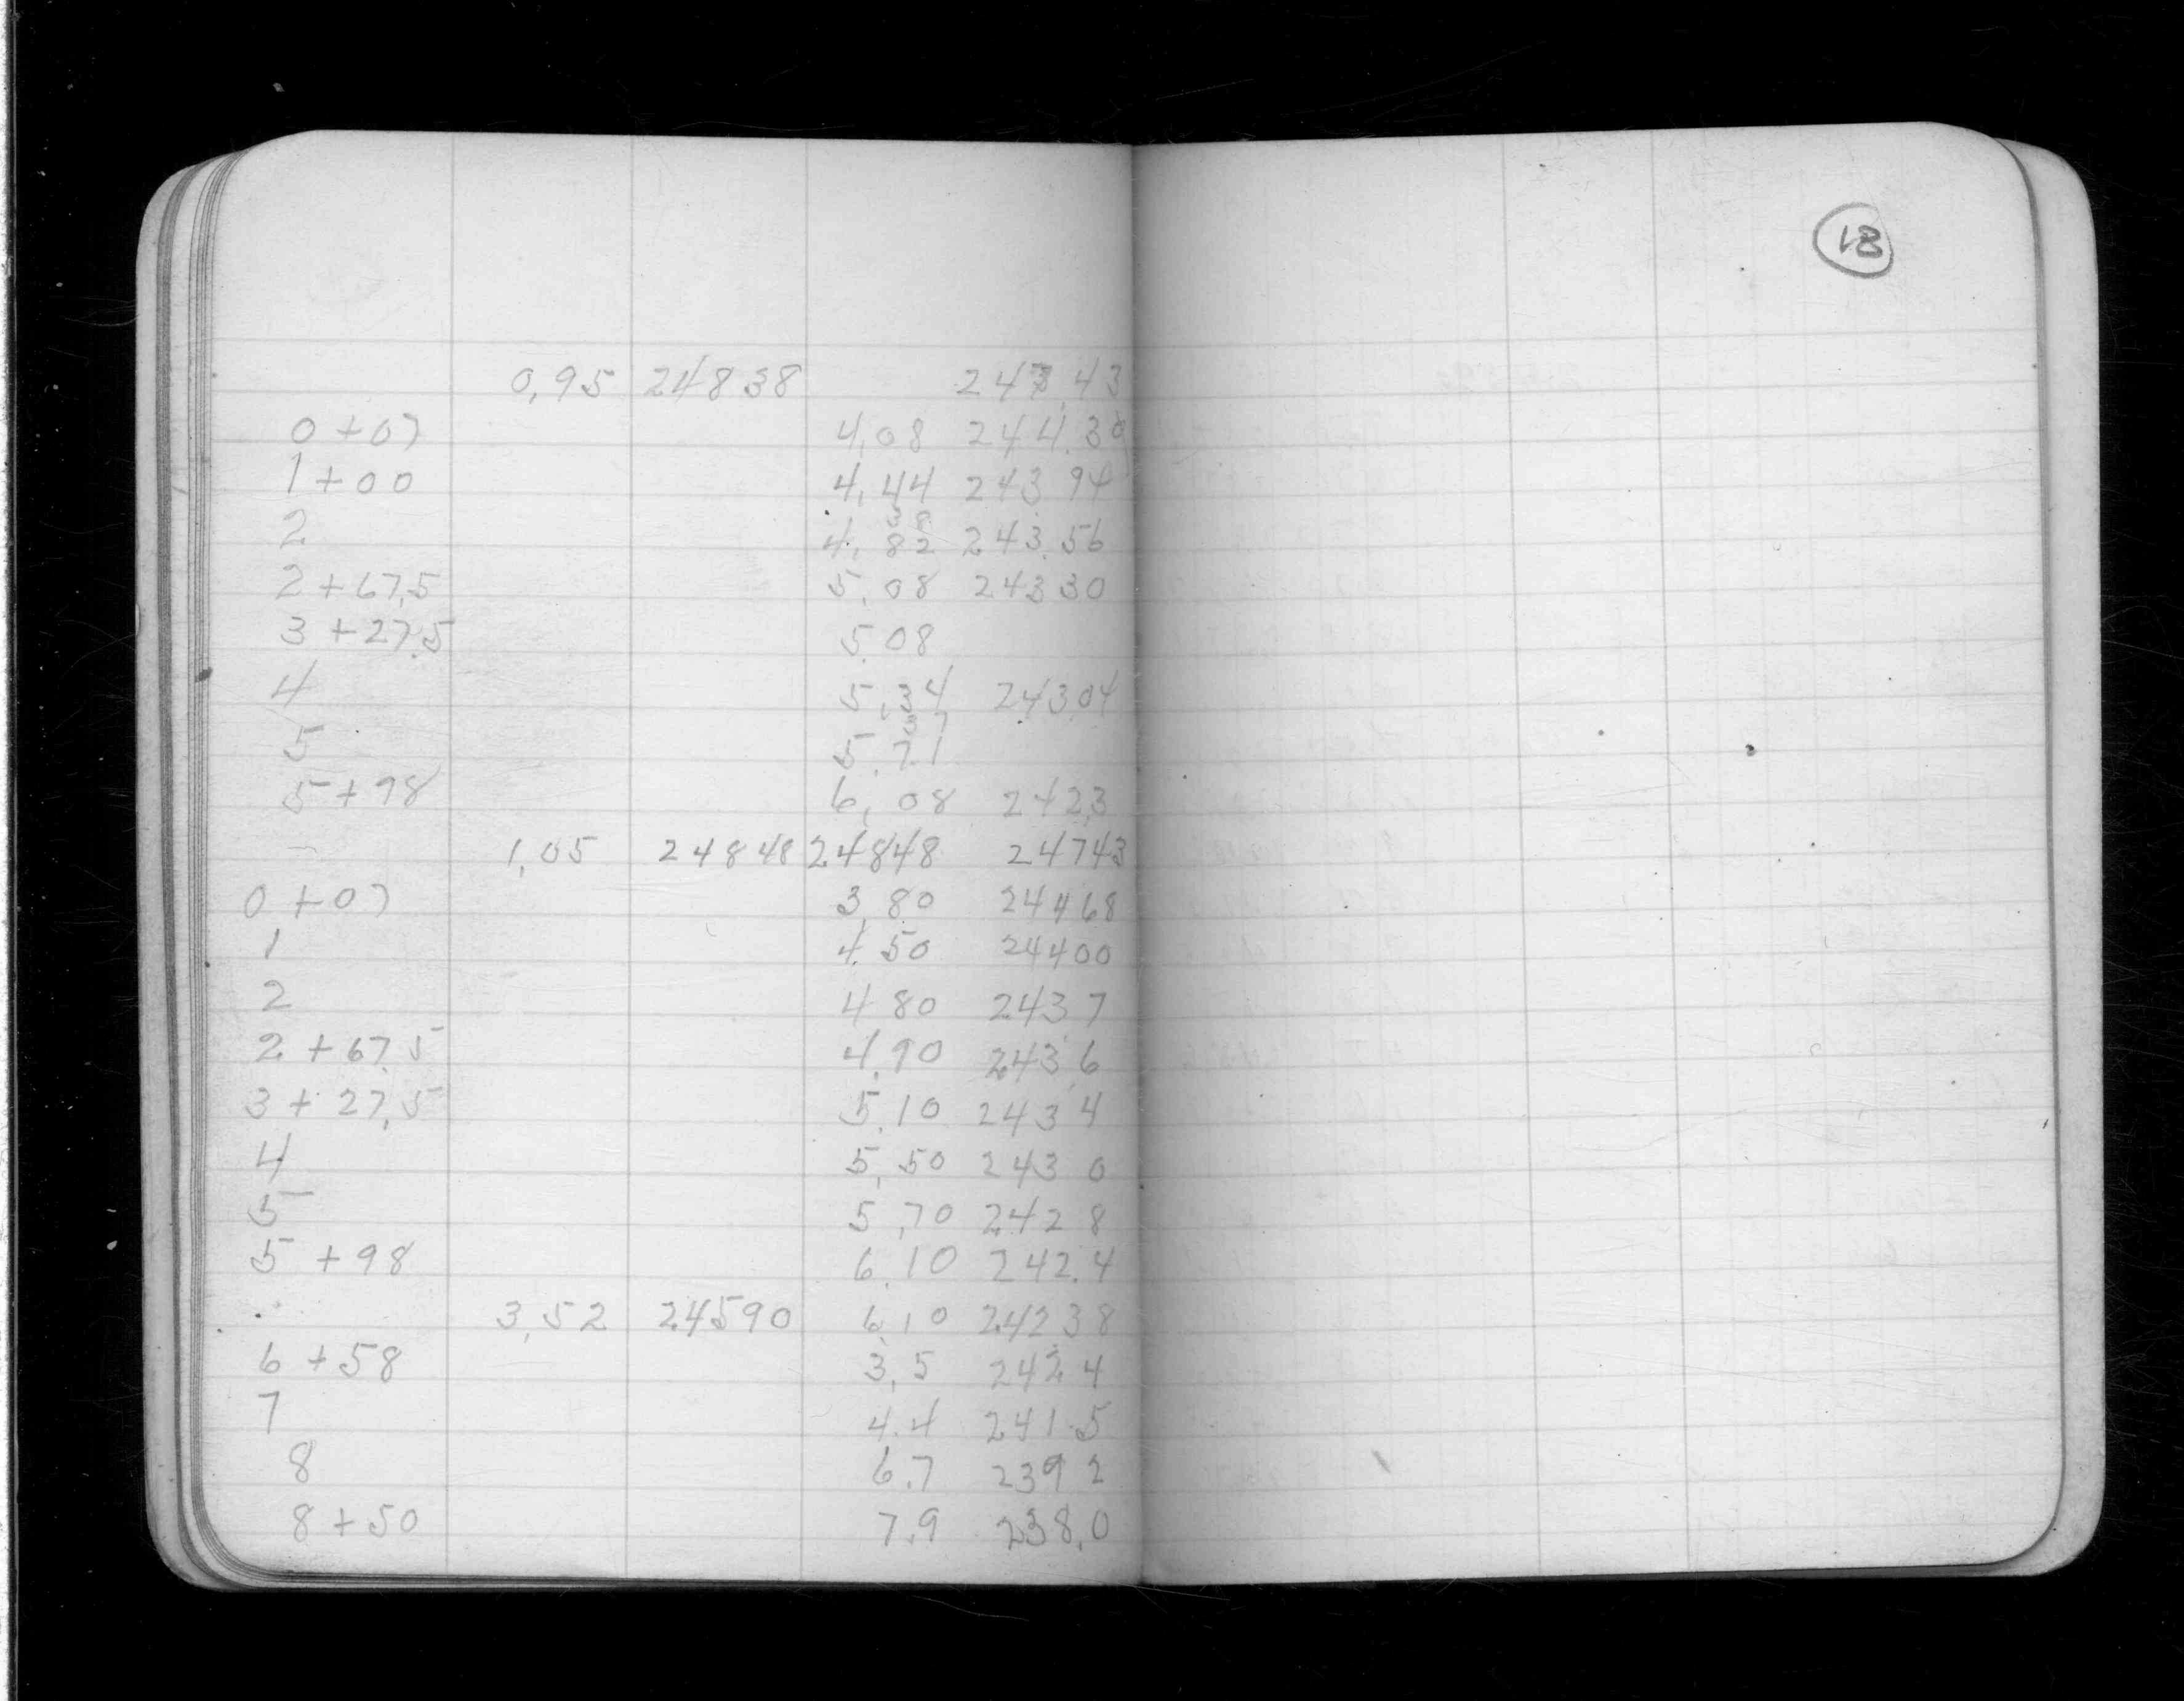 18
0,95 24838 247,43
0+07 4,08 244.30
1+00 4,44 243 94
2 4,82 243.56
2+67,5 5,08 24330
3+27.5 5.08
4 5,34 243.04
5 5.71
5+98 6,08 242,3
1,05 24848 24848 24743
0+07 3,80 24468
1 4.50 24400
2 4 80 243 7
2+67.5 4,90 243,6
3+27,5 5.10 243 4
4 5,50 243 0
5 5,70 242 8
5+98 6.10 242.4
3,52 24590 6,10 24238
6+58 3,5 242 4
7 4.4 241.5
8 6.7 239 2
8+50 7.9 238.0